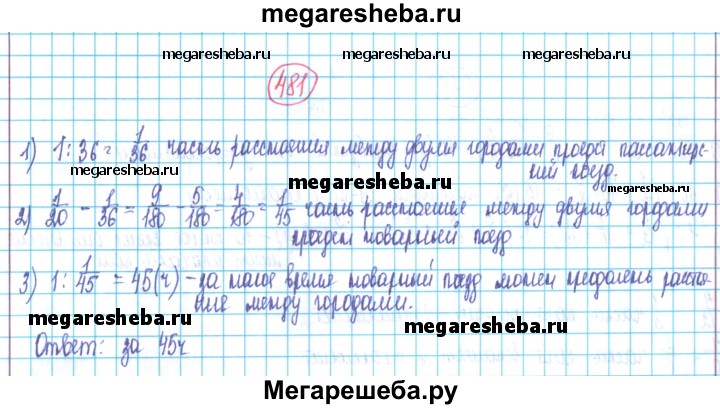 megaresheba.ru
megaresheba.ru megaresheba.ru megaresheba.ru
481
1) 1:36 = 1/36 часть расстояния между двумя городами проедет пассажирс-
megaresheba.ru
кий поезд.
megaresheba.ru megaresheba.ru
2) 1/20 - 1/36 = 9/180 - 5/180 = 4/180 = 1/45 часть расстояния между двумя городами
megaresheba.ru
проедет товарный поезд
3) 1: 1/45 = 45(ч) - за такое время товарный поезд может преодолеть расстоя-
ние между городами.
megaresheba.ru megaresheba.ru
Ответ: за 45ч
Мегарешеба.ру